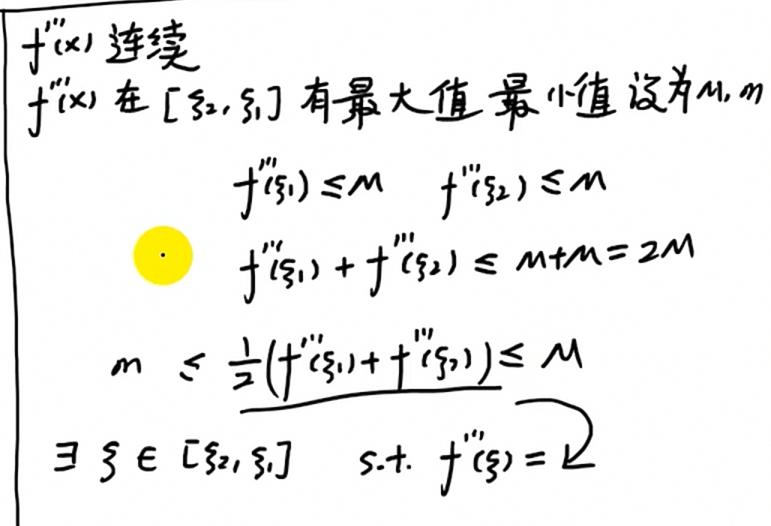 f'''(x) 连续
f'''(x) 在 [ξ₂, ξ₁] 有最大值 最小值 设为 M, m
f'''(ξ₁) ≤ M f'''(ξ₂) ≤ M
f'''(ξ₁) + f'''(ξ₂) ≤ M+M = 2M
m ≤ 1/2 (f'''(ξ₁) + f'''(ξ₂)) ≤ M
∃ ξ ∈ [ξ₂, ξ₁] s.t. f'''(ξ) =